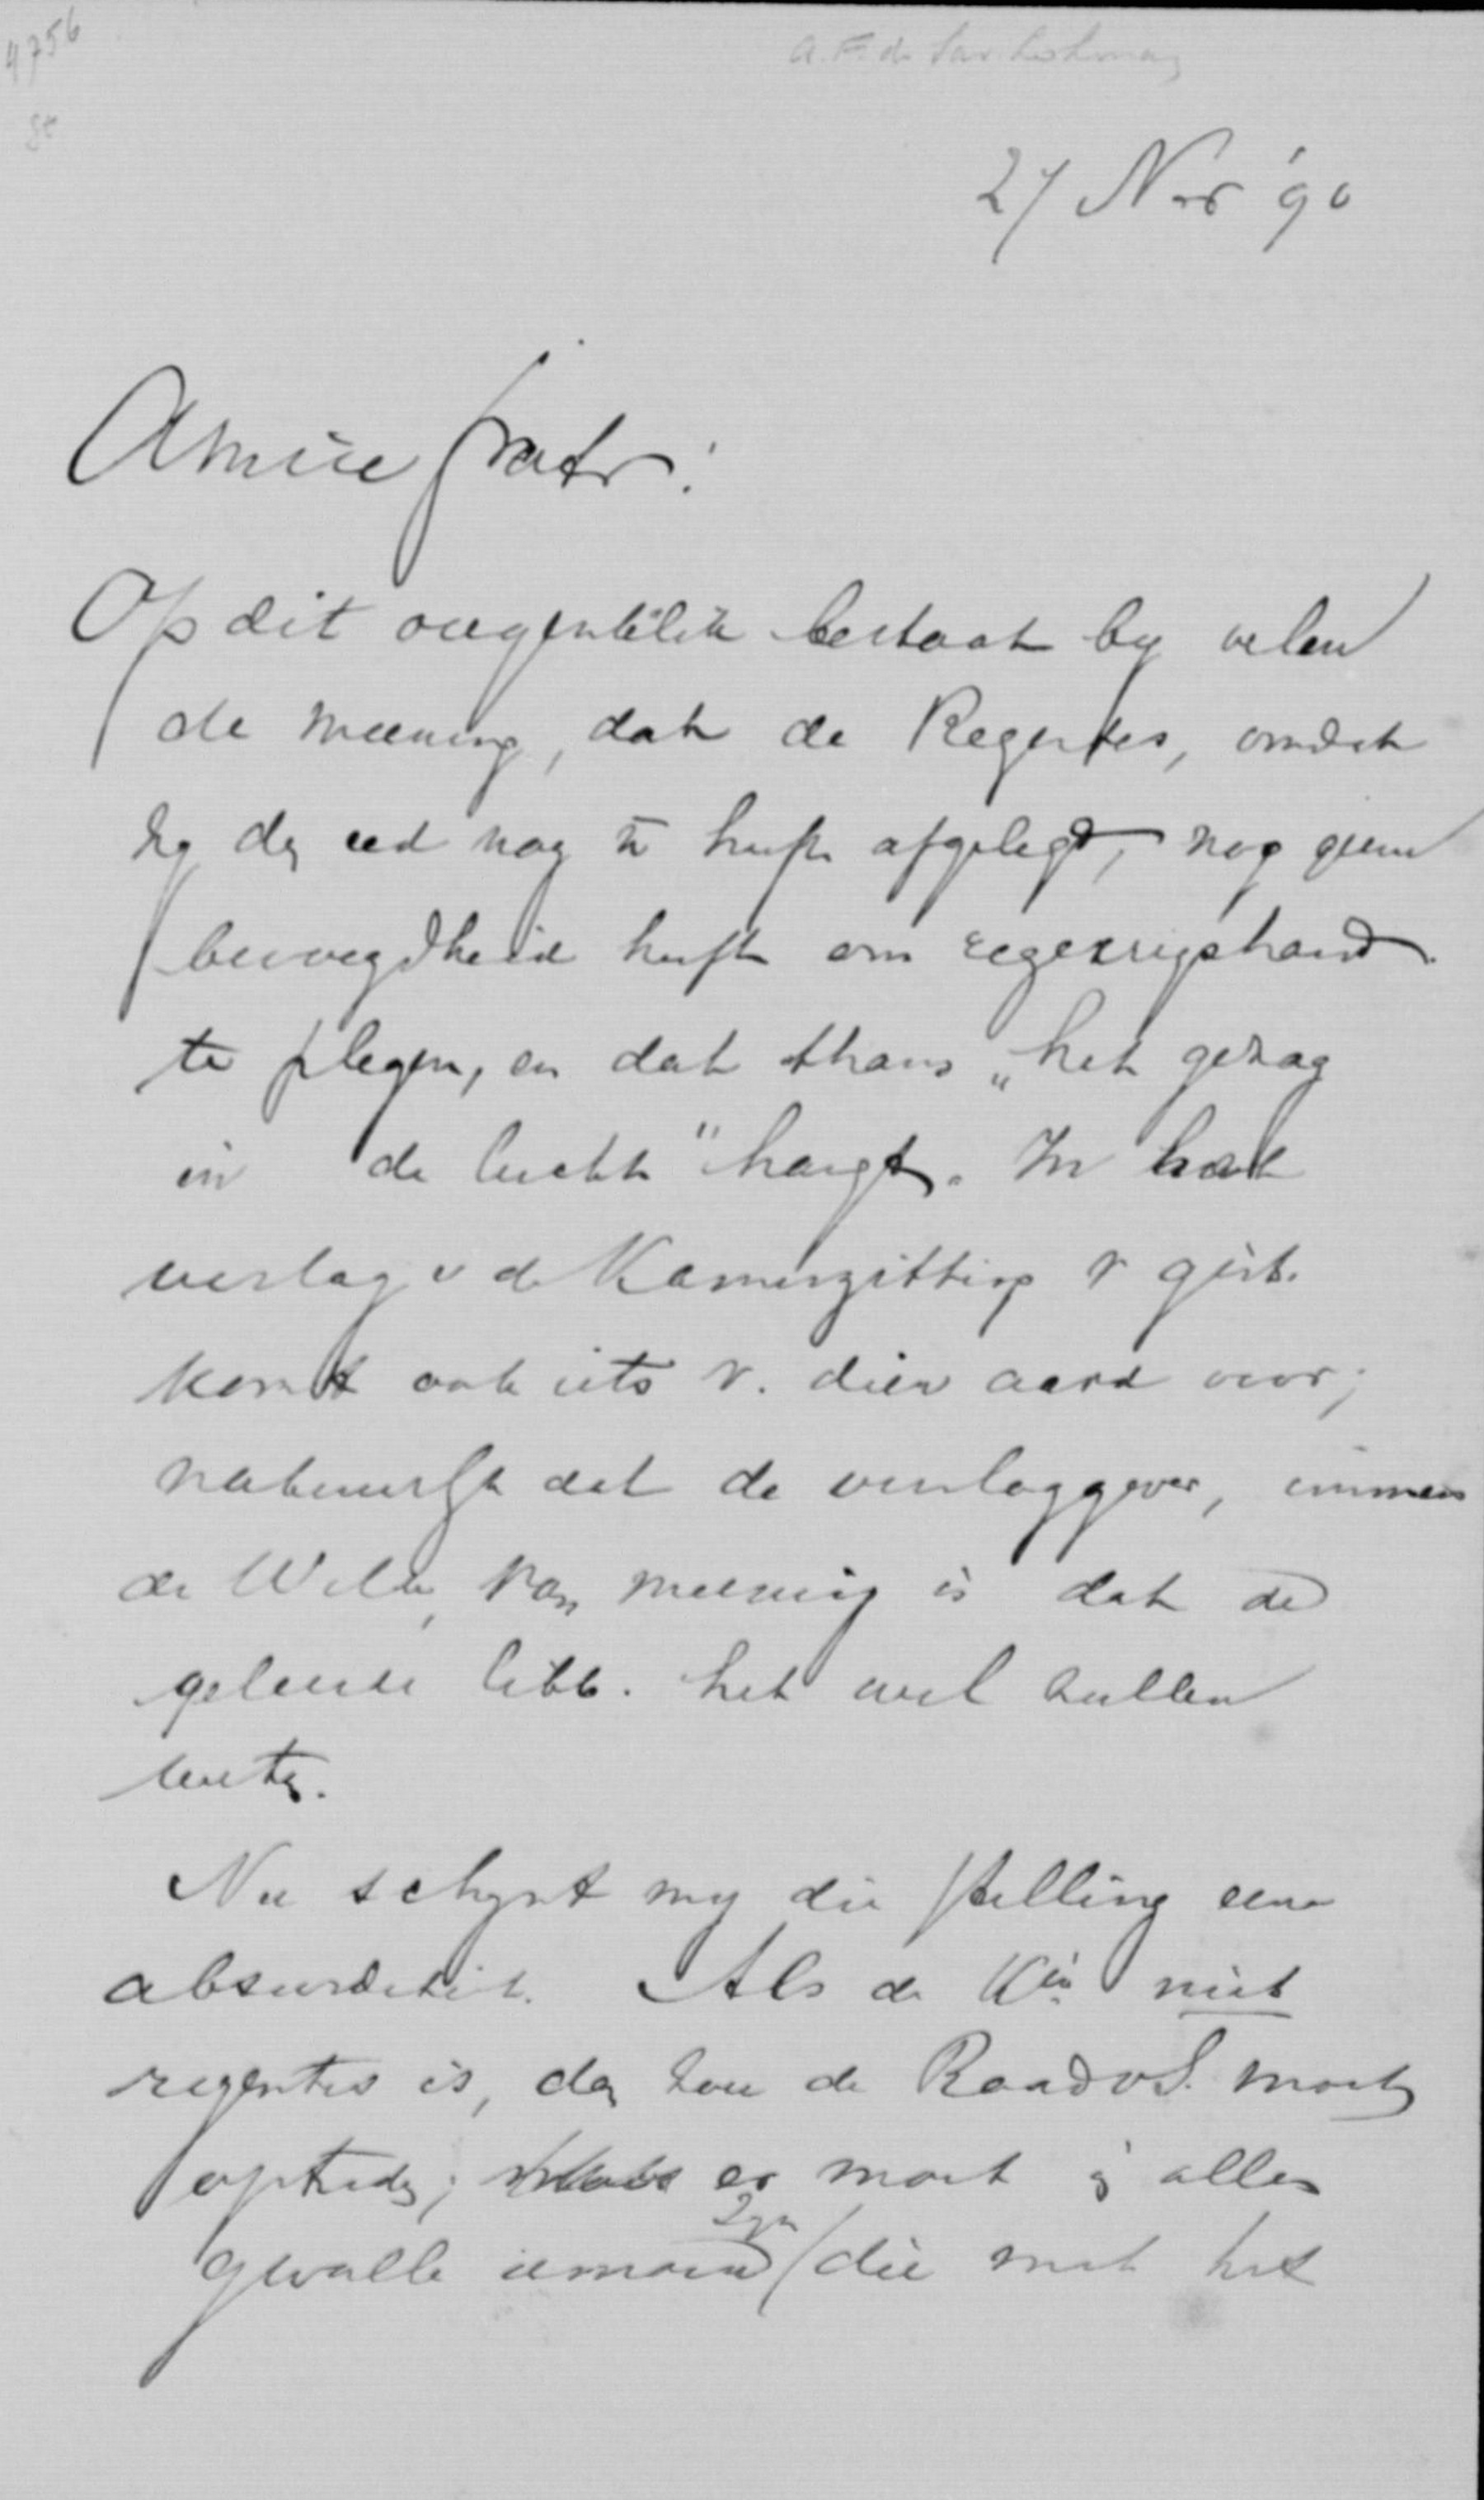 4756
A.F. de Sav. Lohman
27 Nov '90
Amice frater!
Op dit oogenblik bestaat by velen
de meening, dat de Regentes, omdat
zy den eed nog n heeft afgelegd, nog geen
bevoegdheid heeft om regeeringshand.
te plegen, en dat thans "het gezag
in de lucht" hangt. In het
verslag v d Kamerzitting v gist.
komt ook iets v. dien aard voor;
dat de verslaggever, immers
de van meening is dat de
geleerde het wel zullen
weten.
Nu schynt my die stelling eene
absurditeit. Als de Kin niet
regentes is, dan zou de Raad v S. moeten
optreden; er moet in allen
gevalle iemand zyn die met het